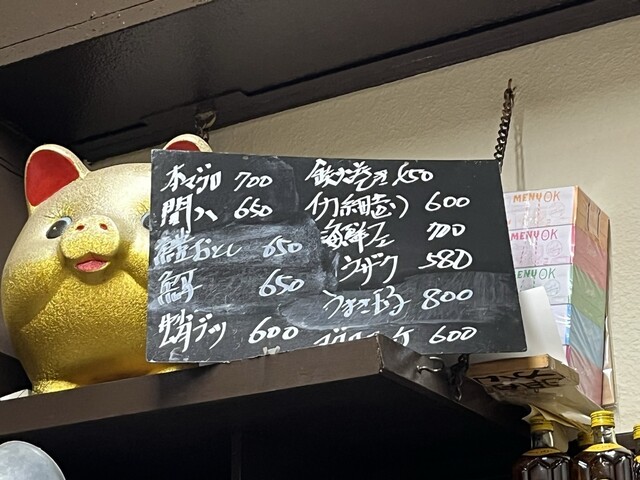 本マグロ 700
間八 650
鱧おとし 650
650
ブツ 600
鉄火巻き 650
イカ納豆 600
海鮮 700
ウザク 580
うまき玉子 800
600
MENU OK
MENU OK
MENU OK